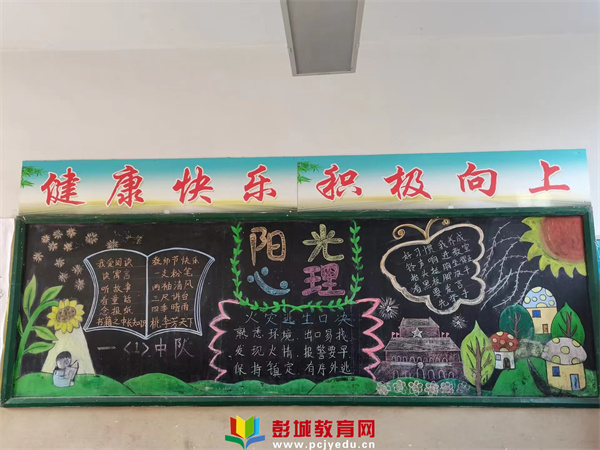 健康快乐 积极向上
我会阅读
读寓言
听故事
看童话
念报纸
书籍之中长知识
教师节快乐
一支粉笔
两袖清风
三尺讲台
四季晴雨
桃李芳天下
一〈1〉中队
阳光
心理
火灾逃生口决
熟悉环境 出口易找
发现火情 报警要早
保持镇定 有序外逃
好习惯 我养成
彭城教育网
www.pcjyedu.cn